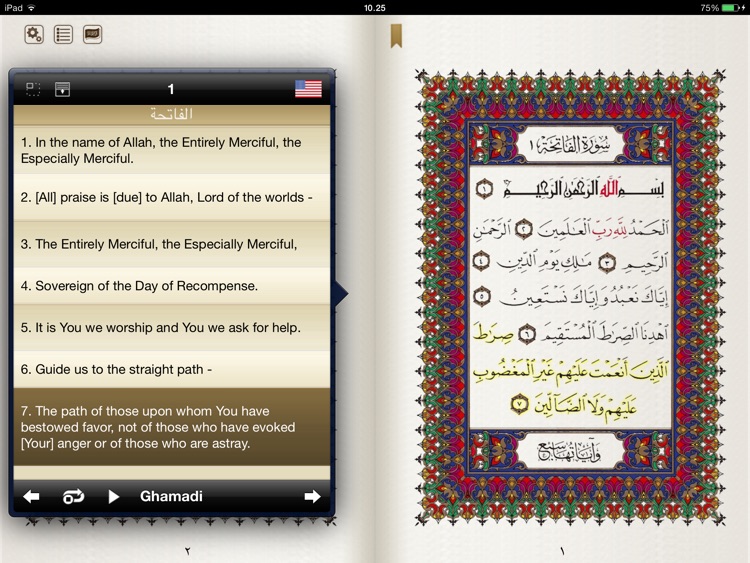 iPad
10.25
75%
1
الفاتحة
1. In the name of Allah, the Entirely Merciful, the
Especially Merciful.
2. [All] praise is [due] to Allah, Lord of the worlds -
3. The Entirely Merciful, the Especially Merciful,
4. Sovereign of the Day of Recompense.
5. It is You we worship and You we ask for help.
6. Guide us to the straight path -
7. The path of those upon whom You have
bestowed favor, not of those who have evoked
[Your] anger or of those who are astray.
Ghamadi
٢
سُورَةُ الفَاتِحَة ١
بِسْمِ اللَّهِ الرَّحْمَٰنِ الرَّحِيمِ ١
الْحَمْدُ لِلَّهِ رَبِّ الْعَالَمِينَ ٢ الرَّحْمَٰنِ
الرَّحِيمِ ٣ مَالِكِ يَوْمِ الدِّينِ ٤
إِيَّاكَ نَعْبُدُ وَإِيَّاكَ نَسْتَعِينُ ٥
اهْدِنَا الصِّرَاطَ الْمُسْتَقِيمَ ٦ صِرَاطَ
الَّذِينَ أَنْعَمْتَ عَلَيْهِمْ غَيْرِ الْمَغْضُوبِ
عَلَيْهِمْ وَلَا الضَّالِّينَ ٧
وَآيَاتُهَا سَبْع
١